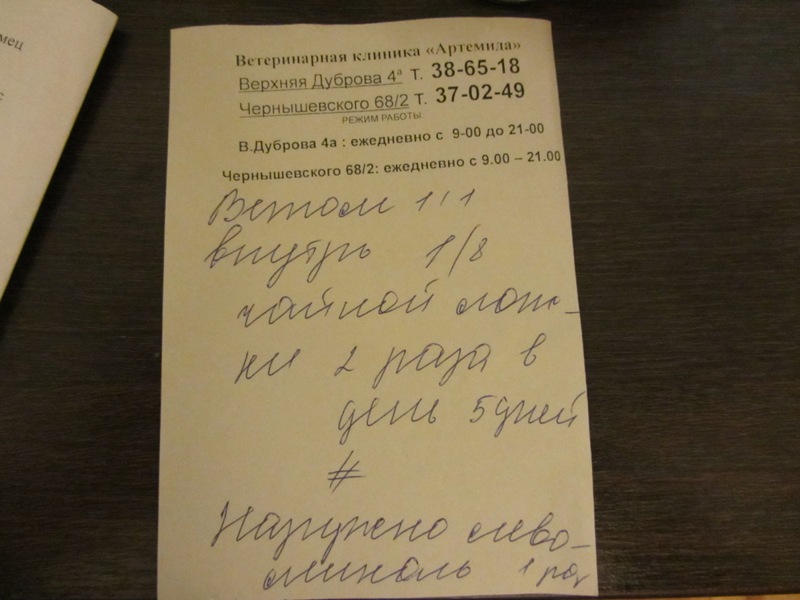 мец
с
Ветеринарная клиника «Артемида»
Верхняя Дуброва 4ª т. 38-65-18
Чернышевского 68/2 т. 37-02-49
РЕЖИМ РАБОТЫ
В.Дуброва 4а : ежедневно с 9-00 до 21-00
Чернышевского 68/2: ежедневно с 9.00 – 21.00
Ветом 1,1
внутрь 1/8
чайной лож-
ки 2 раза в
день 5 дней
#
Наружно лево-
миколь 1 раз